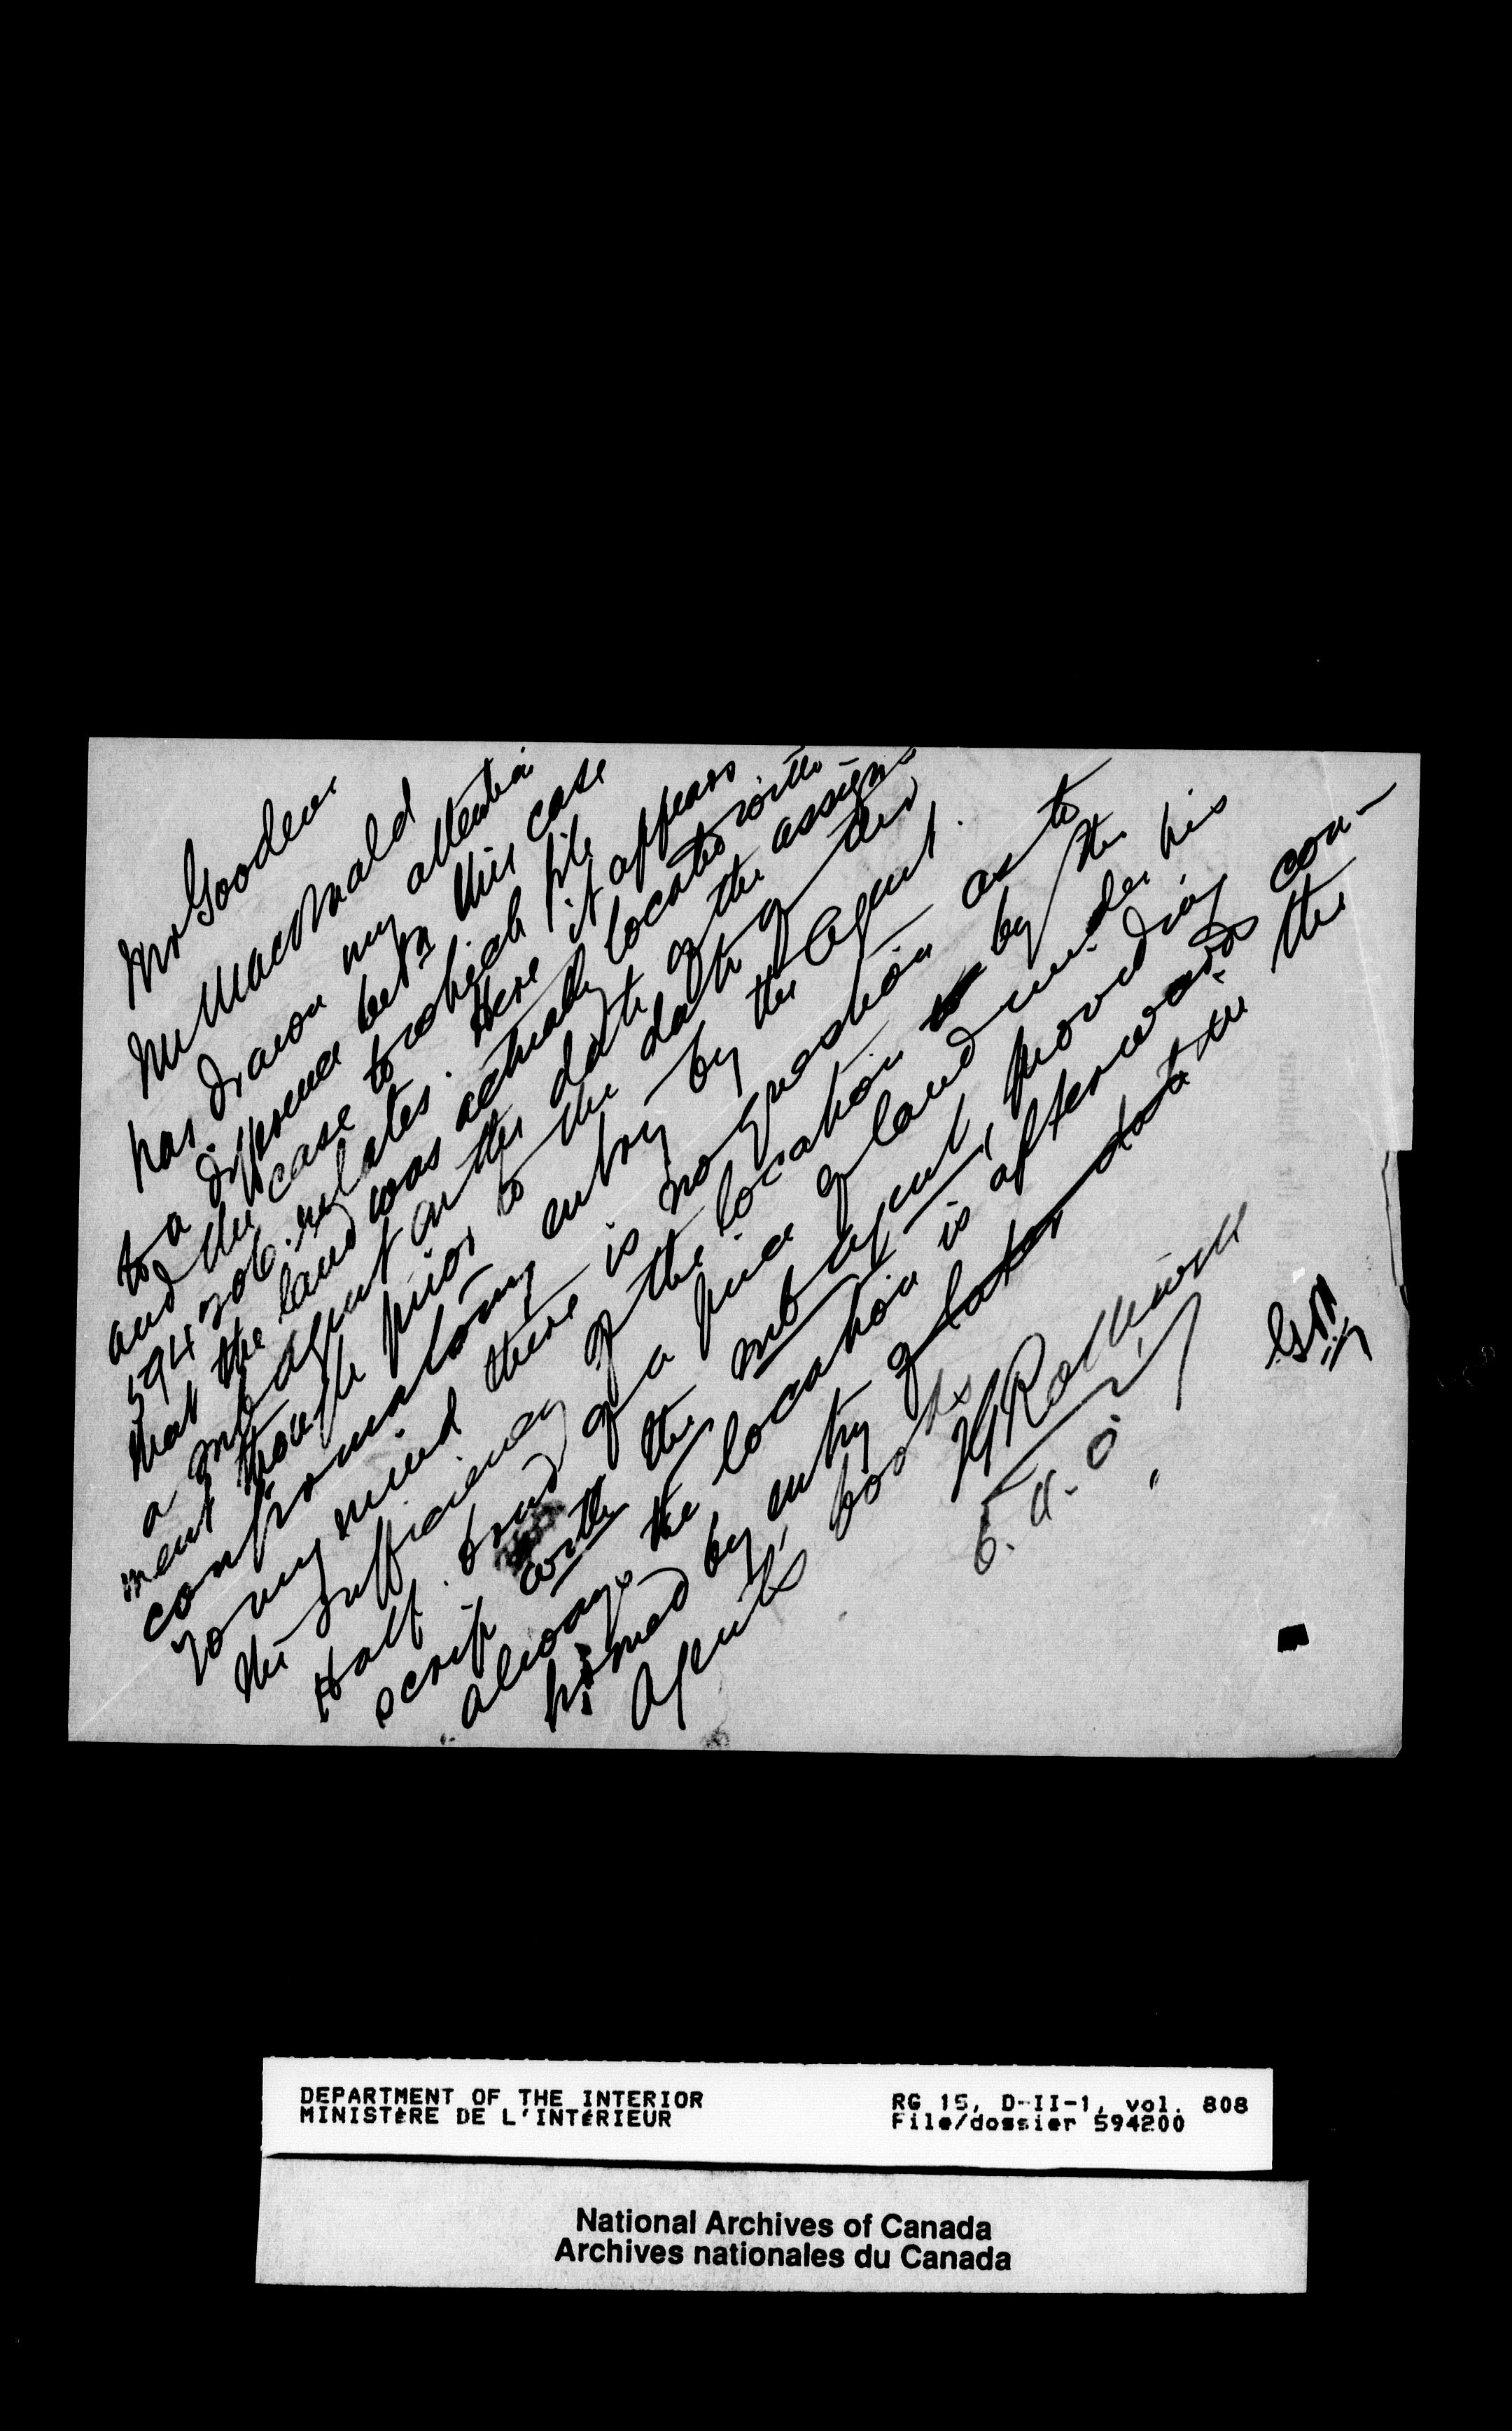 Mr Goodeve
Mr MacDonald
has drawn my attention
to a difference betn this case
and the case to which file
594206 relates. Here it appears
that the land was actually located with
a sub agent on the date of the assign-
ment though prior to the date of the
confirmatory entry by the Agent.
To my mind there is no question as to
the sufficiency of the location by the
Half breed of a piece of land under his
scrip with the sub agent, providing
always the location is afterwards con-
firmed by entry of later date in the
Agents books
E.A.O.
DEPARTMENT OF THE INTERIOR
MINISTÈRE DE L'INTÉRIEUR
RG 15, D-II-1, vol. 808
File/dossier 594200
National Archives of Canada
Archives nationales du Canada